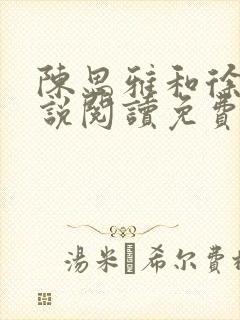 陳思雅和徐
說閱讀免費
湯米·希尔費格